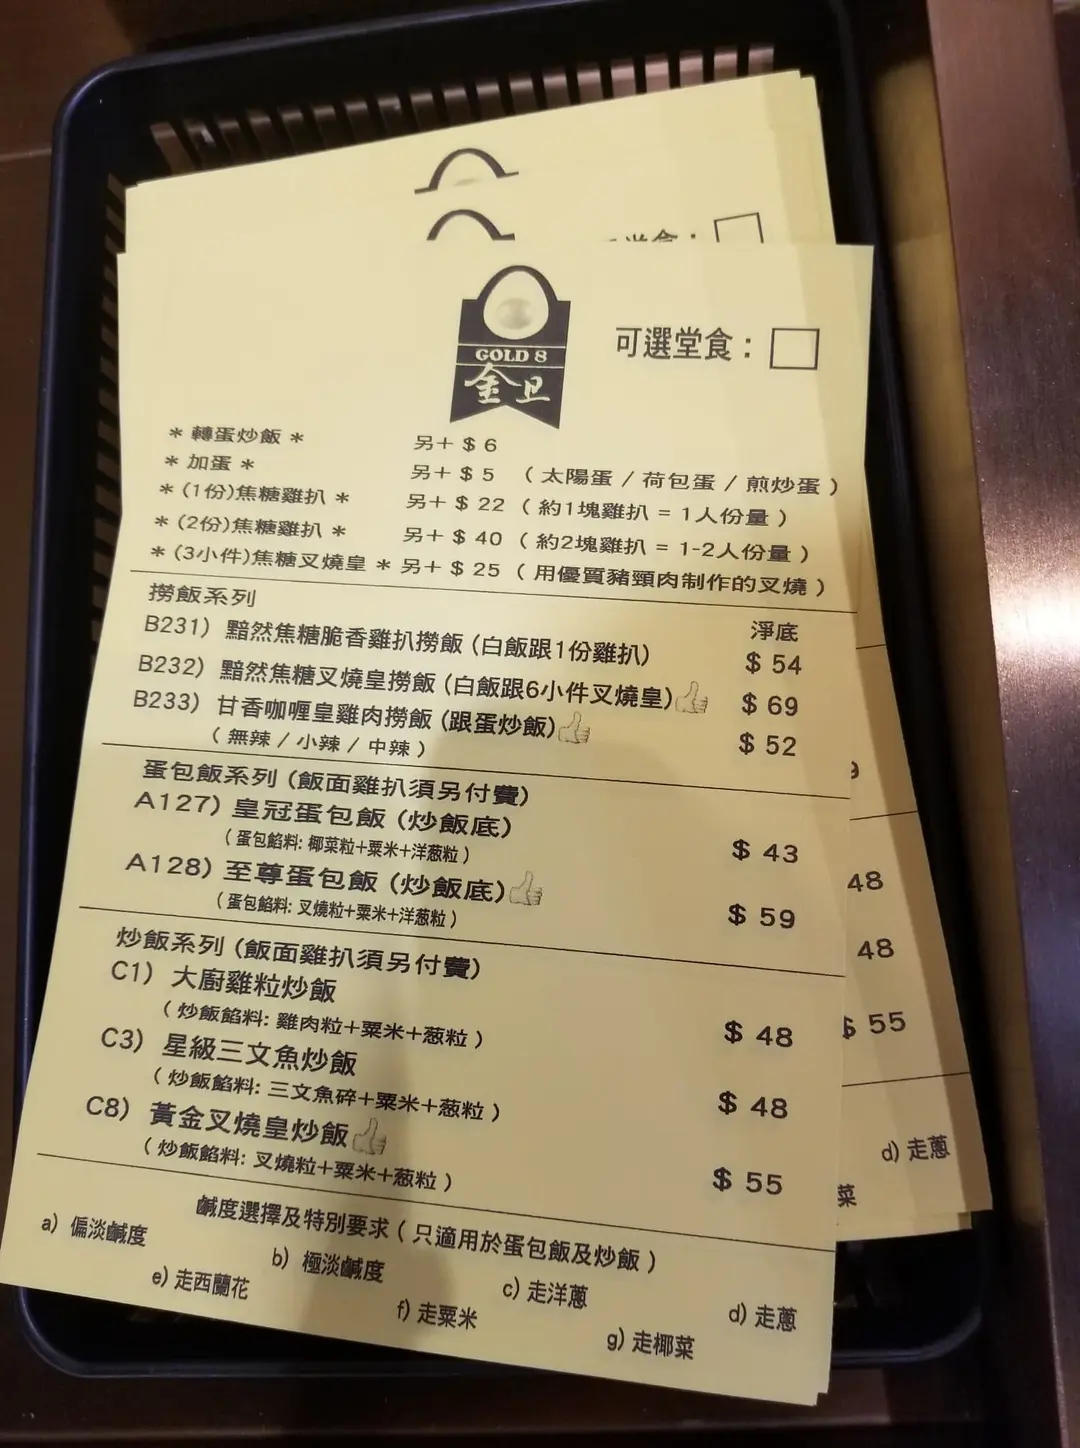 堂食：
GOLD 8
金旦
可選堂食：
* 轉蛋炒飯 * 另+ $ 6
* 加蛋 * 另+ $ 5 （ 太陽蛋 / 荷包蛋 / 煎炒蛋 ）
* (1份)焦糖雞扒 * 另+ $ 22 （ 約1塊雞扒 = 1人份量 ）
* (2份)焦糖雞扒 * 另+ $ 40 （ 約2塊雞扒 = 1-2人份量 ）
* (3小件)焦糖叉燒皇 * 另+ $ 25 （ 用優質豬頸肉制作的叉燒 ）
撈飯系列 淨底
B231) 黯然焦糖脆香雞扒撈飯 (白飯跟1份雞扒) $ 54
B232) 黯然焦糖叉燒皇撈飯 (白飯跟6小件叉燒皇) $ 69
B233) 甘香咖喱皇雞肉撈飯 (跟蛋炒飯) $ 52
（ 無辣 / 小辣 / 中辣 ）
蛋包飯系列 (飯面雞扒須另付費)
A127) 皇冠蛋包飯 (炒飯底) $ 43
（ 蛋包餡料: 椰菜粒+粟米+洋葱粒 ）
A128) 至尊蛋包飯 (炒飯底) $ 59
（ 蛋包餡料: 叉燒粒+粟米+洋葱粒 ）
炒飯系列 (飯面雞扒須另付費)
C1) 大廚雞粒炒飯 $ 48
（ 炒飯餡料: 雞肉粒+粟米+葱粒 ）
C3) 星級三文魚炒飯 $ 48
（ 炒飯餡料: 三文魚碎+粟米+葱粒 ）
C8) 黃金叉燒皇炒飯 $ 55
（ 炒飯餡料: 叉燒粒+粟米+葱粒 ）
鹹度選擇及特別要求 ( 只適用於蛋包飯及炒飯 )
a) 偏淡鹹度 b) 極淡鹹度 c) 走洋蔥 d) 走蔥
e) 走西蘭花 f) 走粟米 g) 走椰菜
9
48
48
$ 55
d) 走蔥
菜